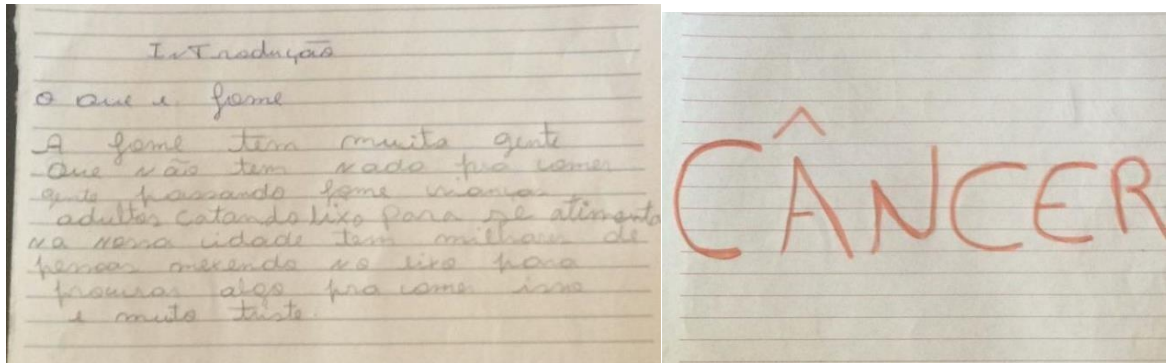 Introdução
O que e fome
A fome tem muita gente
Que não tem nada pra comer
gente passando fome crianças
adultos catando lixo para se alimenta
na nossa cidade tem milhares de
pessoas mexendo no lixo para
procurar algo pra comer isso
e muito triste.
CÂNCER